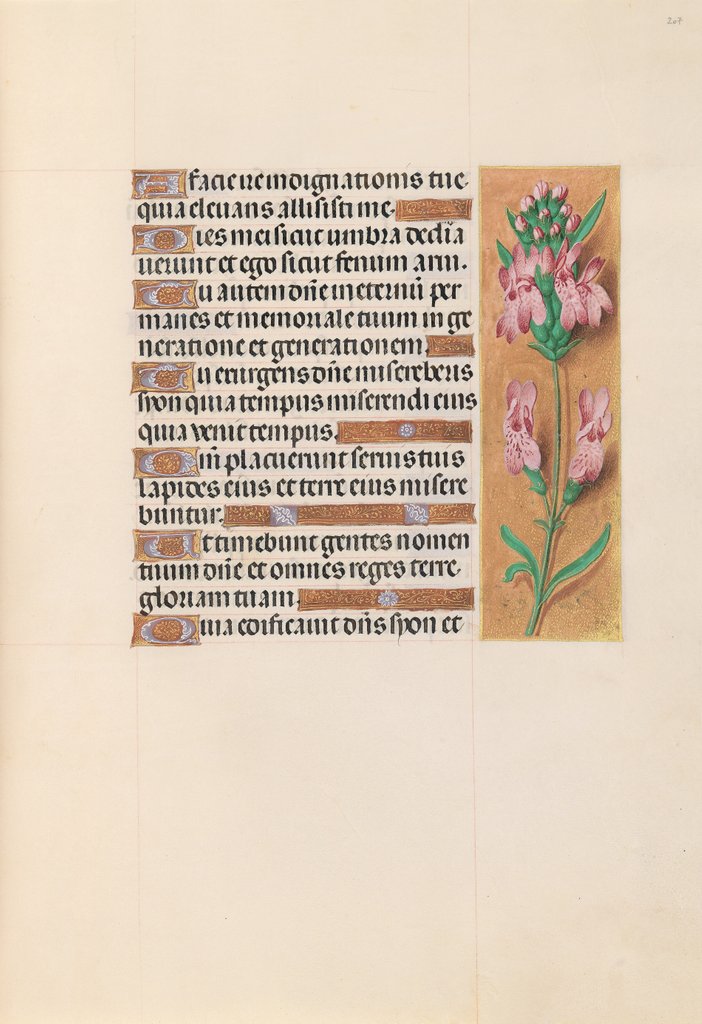 207
A facie ire indignationis tue
quia elevans allisisti me.
Dies mei sicut umbra declia
verunt et ego sicut fenum arui.
Tu autem dñe in eternũ per
manes et memoriale tuum in ge
neratione et generationem.
Tu exurgens dñe misereberis
syon quia tempus miserendi eius
quia venit tempus.
Qm̃ placuerunt servis tuis
lapides eius et terre eius misere
buntur.
Et timebunt gentes nomen
tuum dñe et omnes reges terre
gloriam tuam.
Quia edificavit dñs syon et